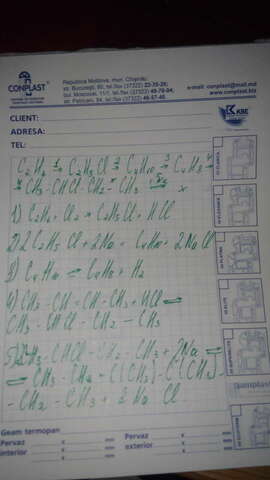 CONPLAST
Republica Moldova, mun. Chişinău
str. Bucureşti, 60, tel./fax (37322) 22-25-29;
bul. Moscovei, 11/1, tel./fax (37322) 49-79-94;
str. Petricani, 84, tel./fax (37322) 46-57-46
e-mail: conplast@mail.md
www.conplast.biz
KBE
CLIENT:
ADRESA:
TEL:
C2H6 1→ C2H5Cl 2→ C4H10 3→ C4H8 4→
→ CH3-CHCl-CH2-CH3 5→ x
1) C2H6 + Cl2 → C2H5Cl + HCl
2) 2C2H5Cl + 2Na = C4H10 + 2NaCl
3) C4H10 = C4H8 + H2
4) CH3 - CH = CH - CH3 + HCl =
CH3 - CHCl - CH2 - CH3
5) 2CH3 - CHCl - CH2 - CH3 + 2Na =
- CH2 - CH3 + 2NaCl
Geam termopan
Pervaz
interior
x
x
x
Pervaz
exterior
x
x
x